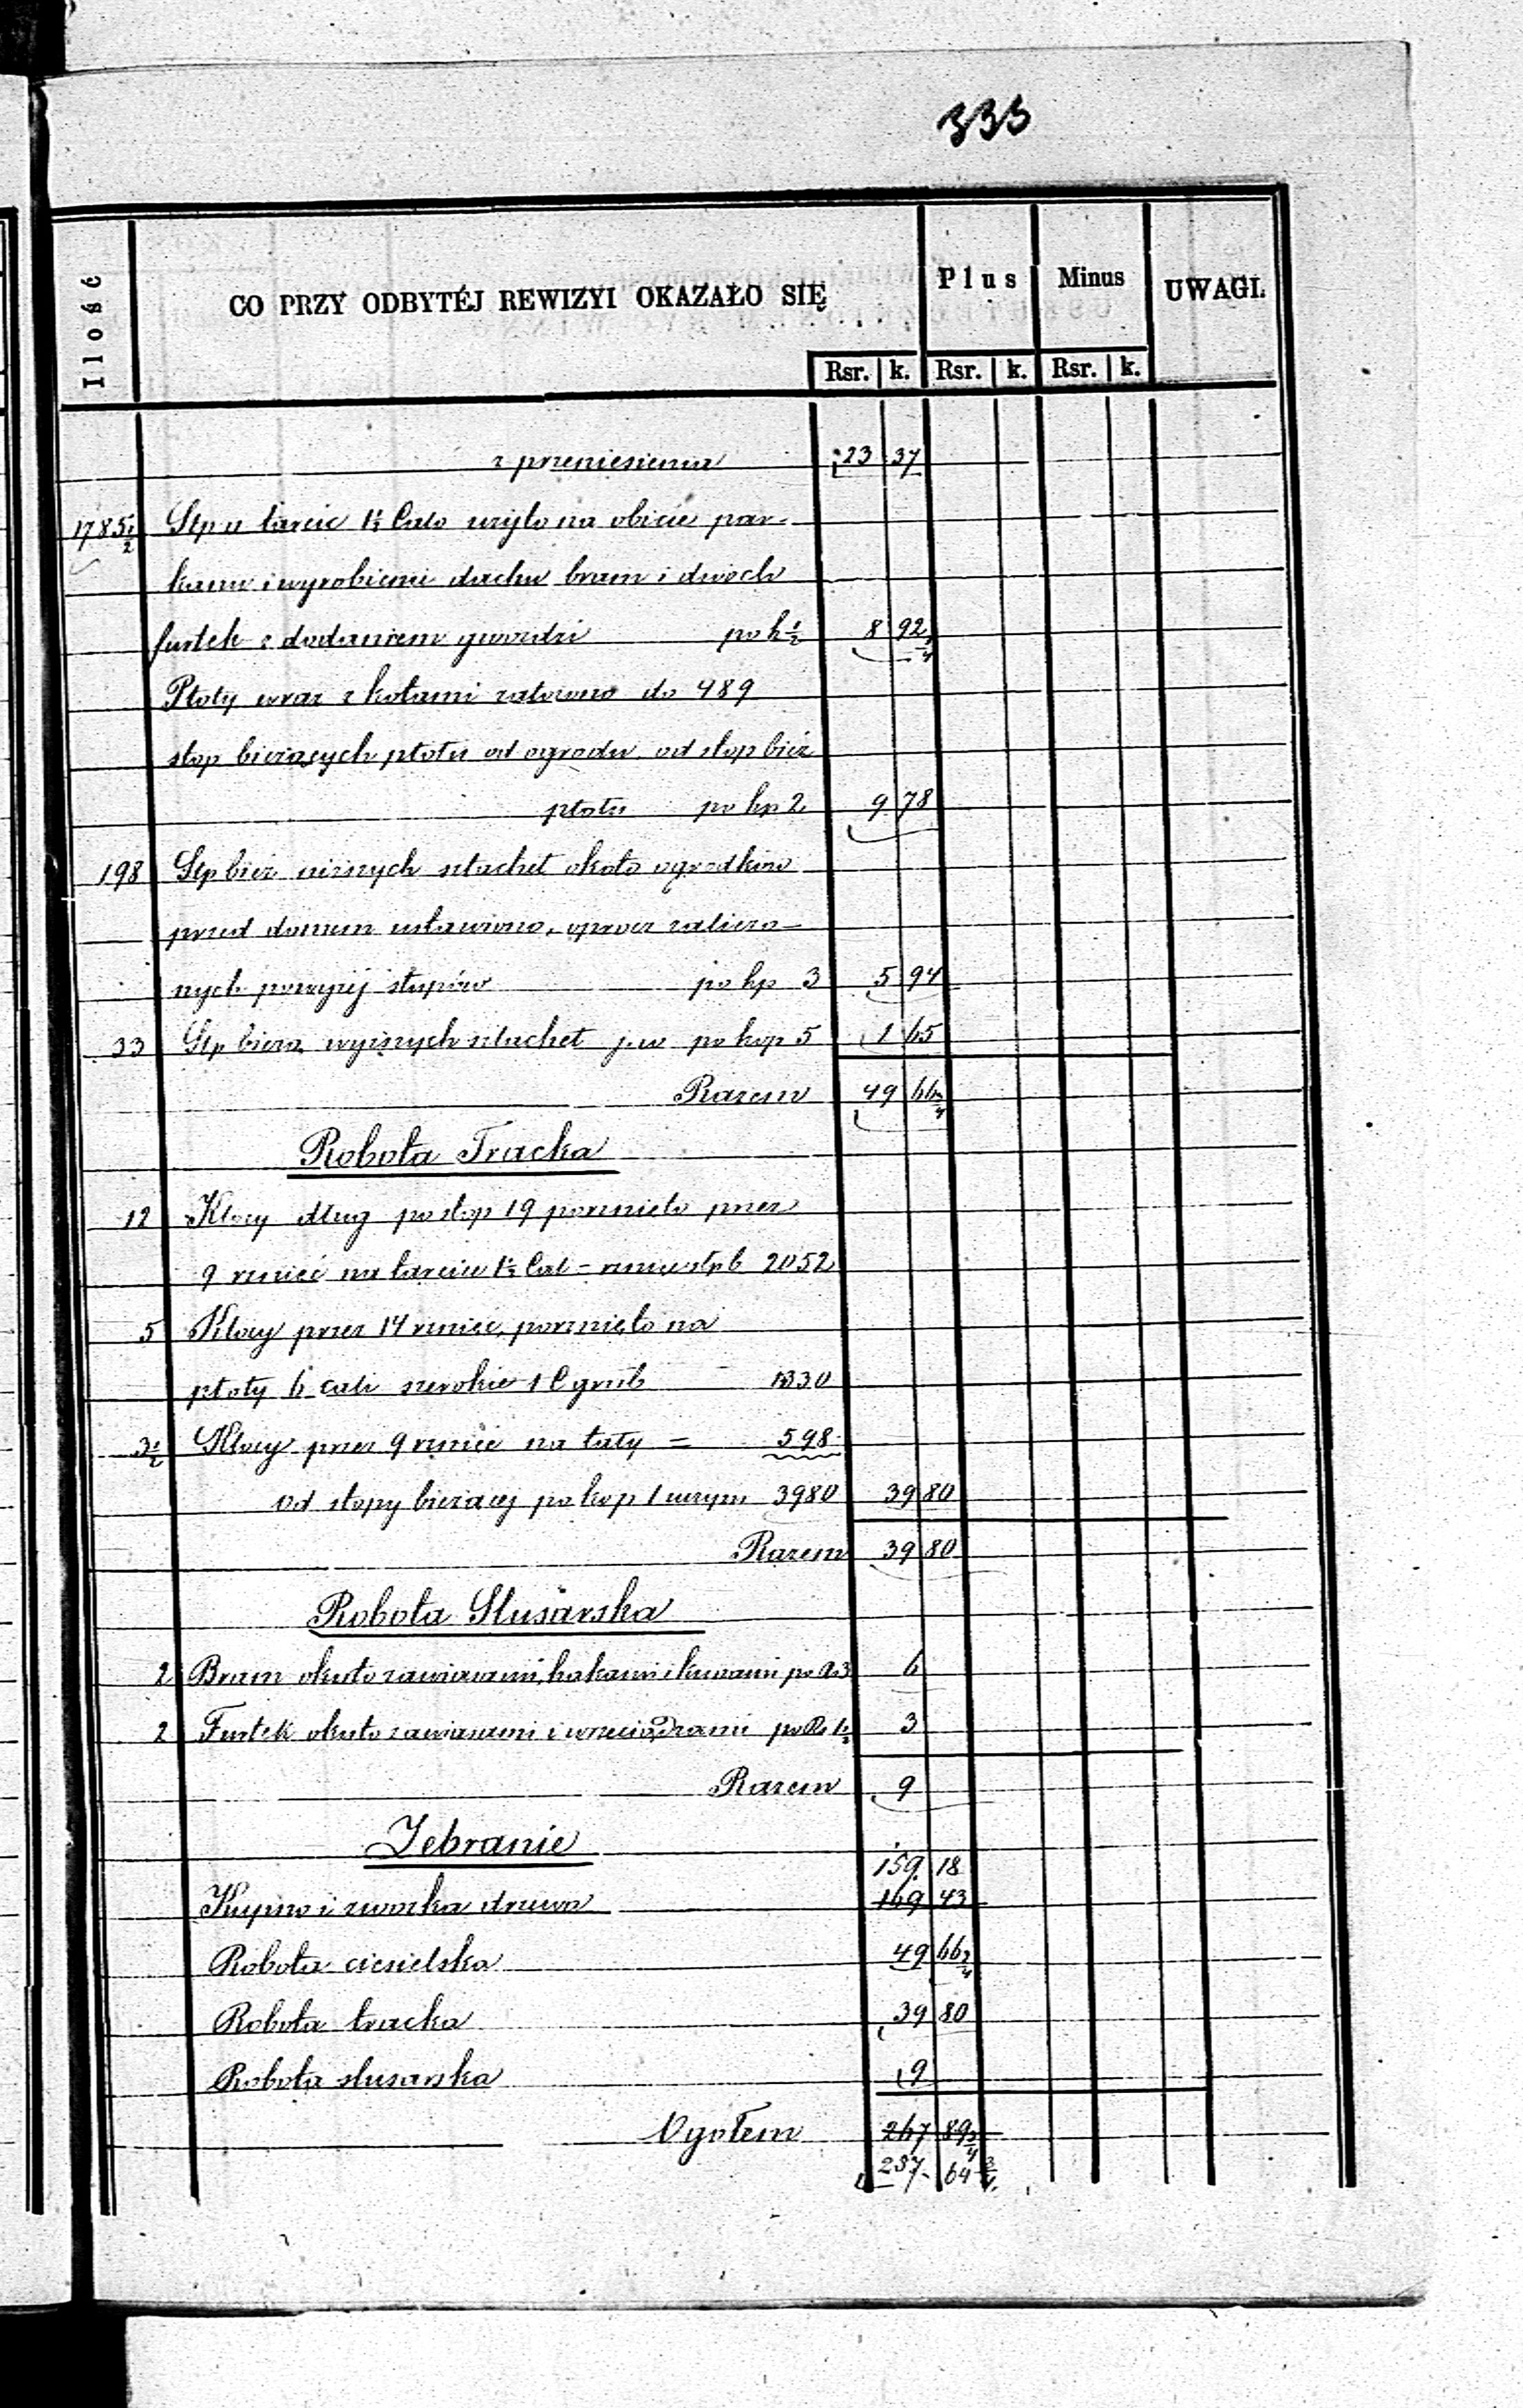 333
Ilość CO PRZY ODBYTÉJ REWIZYI OKAZAŁO SIĘ Plus Minus UWAGI.
Rsr. k. Rsr. k. Rsr. k.
z przeniesienia 23 37
1785 1/2 Stp u tarcic 1 1/2 Calo użyto na obicie par-
kanu i wyrobieni dachu bram i dwóch
furtek z dodaniem gwoździ po k 1/2 8 92 3/4
Płoty wraz z kołami zatoczono do 489
stop bieżących płotu od ogrodu od stop bież
płotu po kp 2 9 78
198 Stp bież niższych sztachet około ogrodków
przed domem ustawiono, oprócz zalicza-
nych powyżej słupów po kp 3 5 94
33 Stp bieżą wyższych sztachet j.w po kop 5 1 65
Razem 49 66 3/4
Robota Tracka
12 Klocy dług po stop 19 porznięto przez
9 rznięć na tarcice 1 1/2 Cal = rznię stp b 2052
5 Klocy przez 14 rznięć, porznięto na
płoty 6 cali szerokie 1 C grub 1330
3 1/2 Klocy przez 9 rznięć na łaty = 598
od stopy bieżącej po kop 1 wrym 3980 39 80
Razem 39 80
Robota Slusarska
2 Bram okuto zawiasami, hakami i kunami po Rs 3 6
2 Furtek okuto zawiasami i wrzeciądzami po Rs 1 1/2 3
Razem 9
Zebranie
159 18
Kupno i zwózka drzewa 169 43
Robota ciesielska 49 66 3/4
Robota tracka 39 80
Robota slusarska 9
Ogółem 267 89 3/4
257 64 3/4